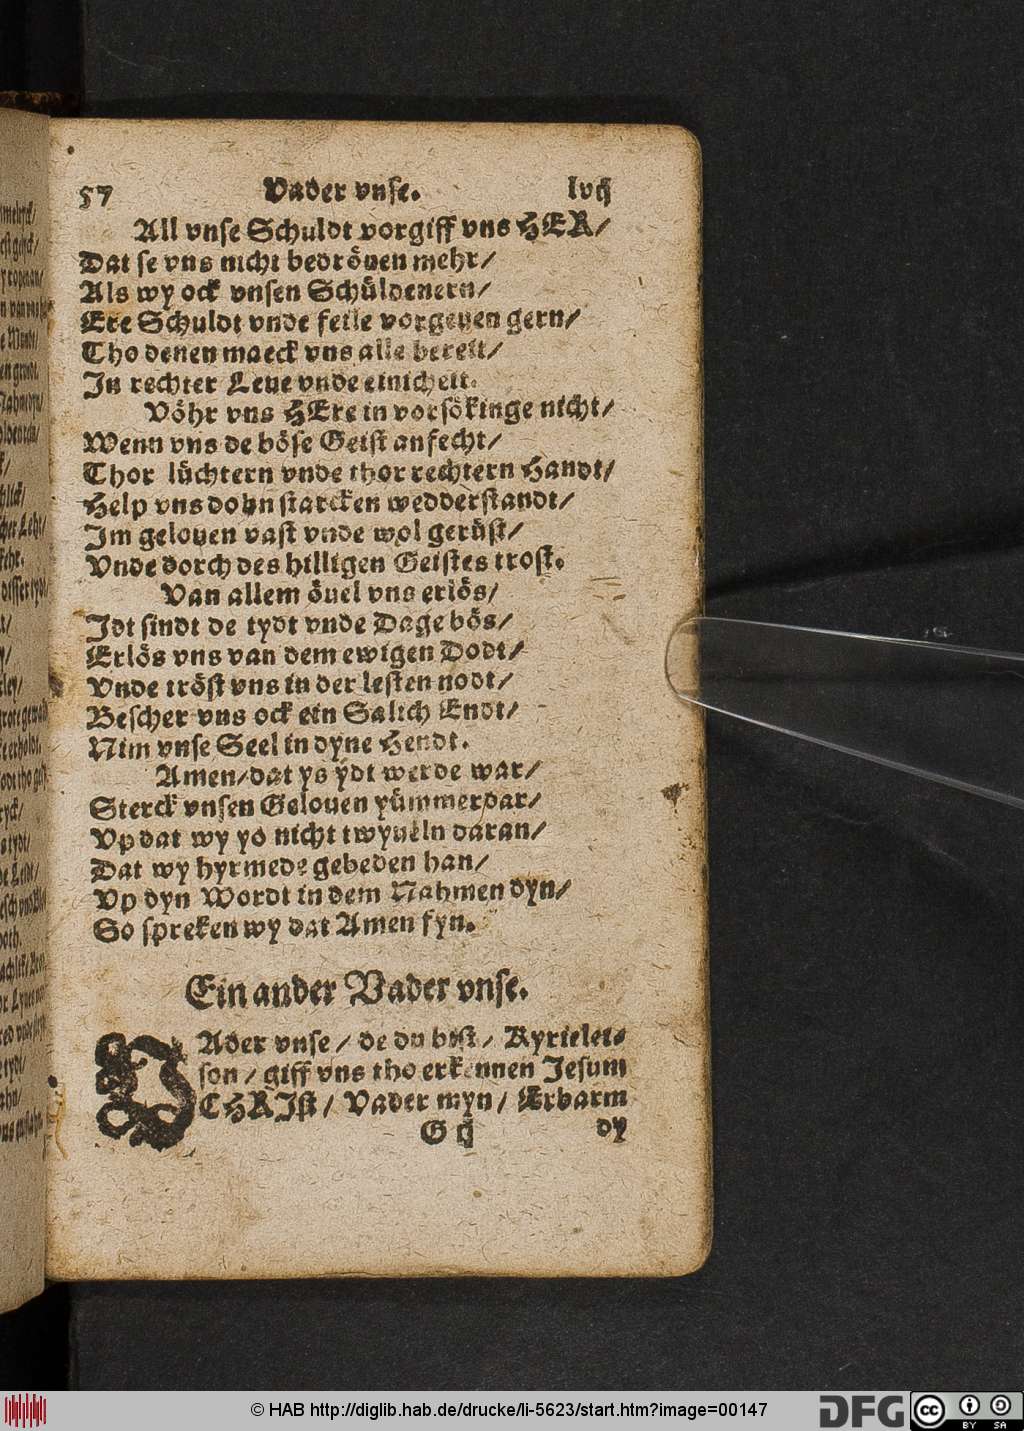 57 Vader vnse. lvij
All vnse Schuldt vorgiff vns HER/
Dat se vns nicht bedröuen mehr/
Als wy ock vnsen Schüldenern/
Ere Schuldt vnde feile vorgeuen gern/
Tho denen maeck vns alle bereit/
In rechter Leue vnde einicheit.
Vöhr vns HEre in vorsökinge nicht/
Wenn vns de böse Geist anfecht/
Thor lüchtern vnde thor rechtern Handt/
Help vns dohn starcken wedderstandt/
Im gelouen vast vnde wol gerüst/
Vnde dorch des hilligen Geistes trost.
Van allem öuel vns erlös/
Idt sindt de tydt vnde Dage bös/
Erlös vns van dem ewigen Dodt/
Vnde tröst vns in der lesten nodt/
Bescher vns ock ein Salich Endt/
Nim vnse Seel in dyne Hendt.
Amen/dat ys ydt werde war/
Sterck vnsen Gelouen yümmerdar/
Vp dat wy yo nicht twyueln daran/
Dat wy hyrmede gebeden han/
Vp dyn Wordt in dem Nahmen dyn/
So spreken wy dat Amen fyn.
Ein ander Vader vnse.
VAder vnse / de du bist / Kyrielei-
son / giff vns tho erkennen Jesum
CHRIst / Vader myn / Erbarm
G ij dy
© HAB http://diglib.hab.de/drucke/li-5623/start.htm?image=00147
DFG
cc BY SA